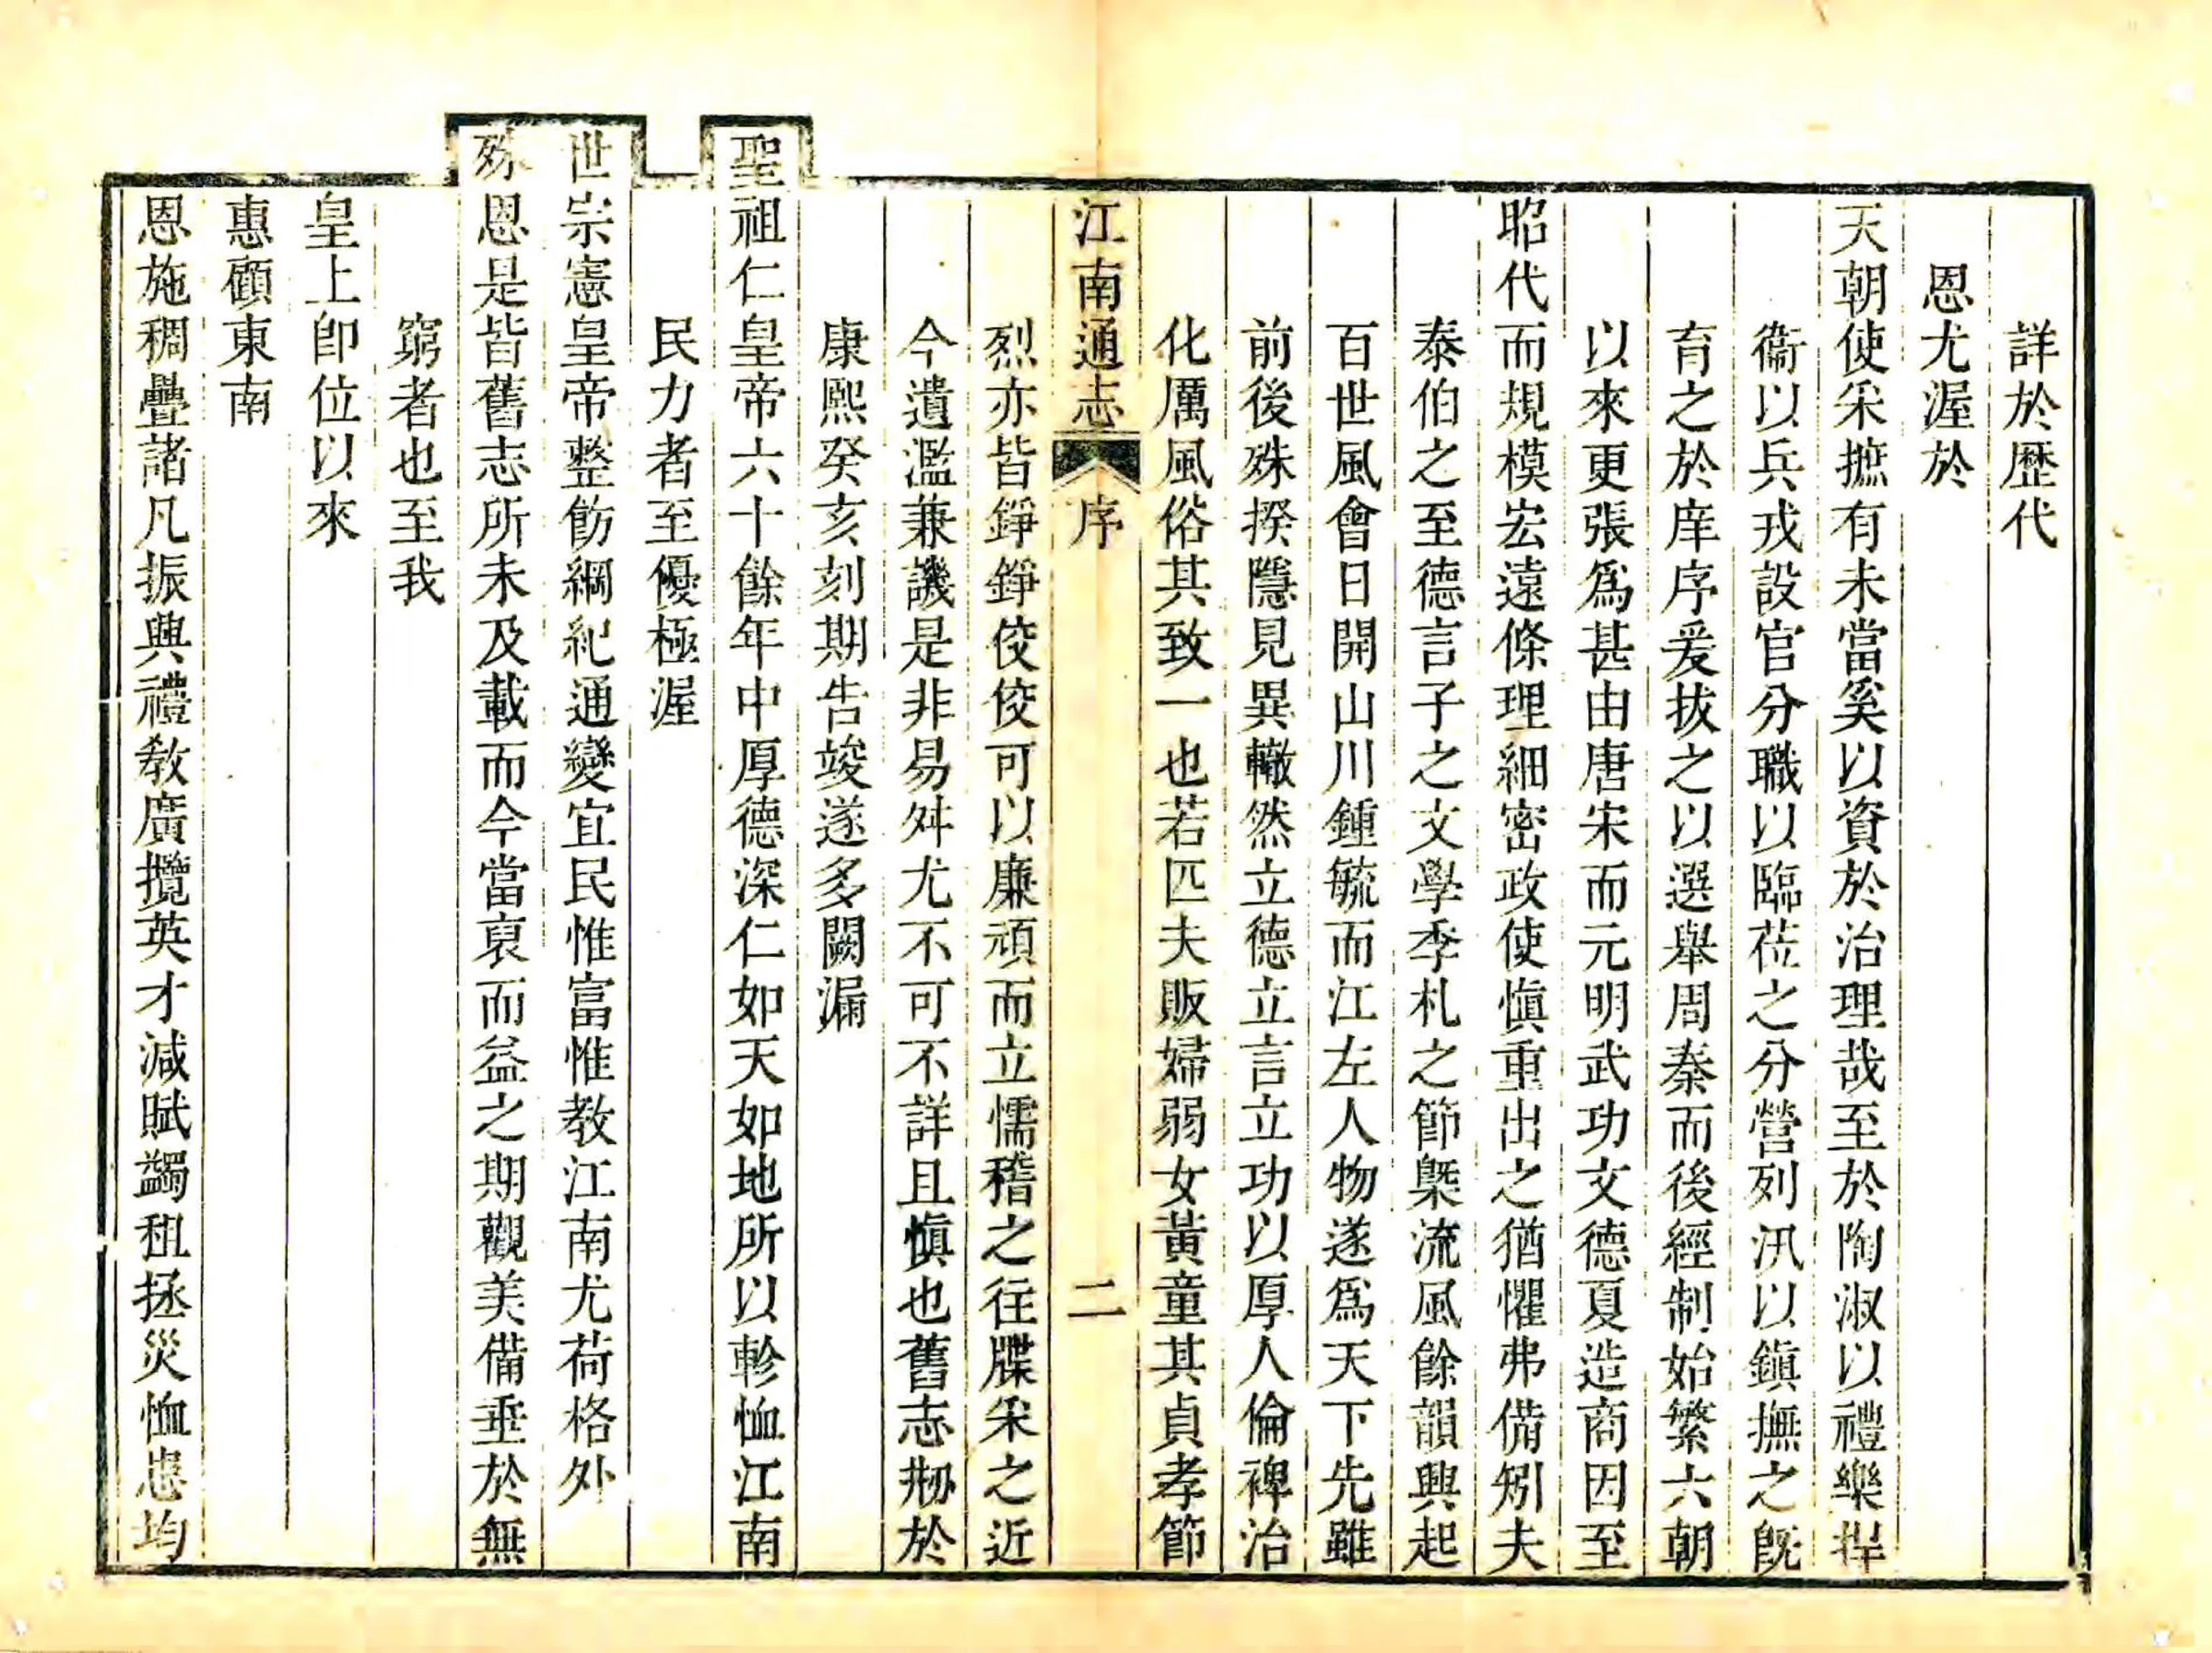 詳於歷代
恩尤渥於
天朝使采摭有未當奚以資於治理哉至於陶淑以禮樂捍
衞以兵戎設官分職以臨莅之分營列汛以鎭撫之旣
育之於庠序爰拔之以選舉周秦而後經制始繁六朝
以來更張爲甚由唐宋而元明武功文德夏造商因至
昭代而規模宏遠條理細密政使愼重出之猶懼弗備矧夫
泰伯之至德言子之文學季札之節槩流風餘韻興起
百世風會日開山川鍾毓而江左人物遂爲天下先雖
前後殊揆隱見異轍然立德立言立功以厚人倫裨治
化厲風俗其致一也若匹夫販婦弱女黃童其貞孝節
江南通志 序 二
烈亦皆錚錚佼佼可以廉頑而立懦稽之往牒采之近
今遺濫兼譏是非易舛尤不可不詳且愼也舊志刱於
康熙癸亥刻期告竣遂多闕漏
聖祖仁皇帝六十餘年中厚德深仁如天如地所以軫恤江南
民力者至優極渥
世宗憲皇帝整飭綱紀通變宜民惟富惟教江南尤荷格外
殊恩是皆舊志所未及載而今當裒而益之期觀美備垂於無
窮者也至我
皇上卽位以來
惠顧東南
恩施稠疊諸凡振興禮教廣攬英才減賦蠲租拯災恤患均